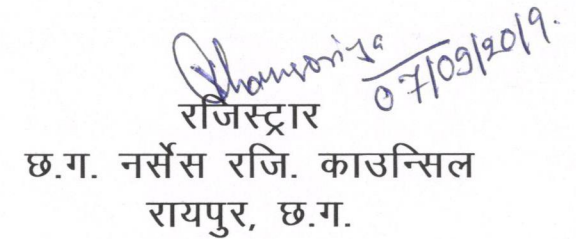 07/09/2019.
रजिस्ट्रार
छ.ग. नर्सेस रजि. काउन्सिल
रायपुर, छ.ग.